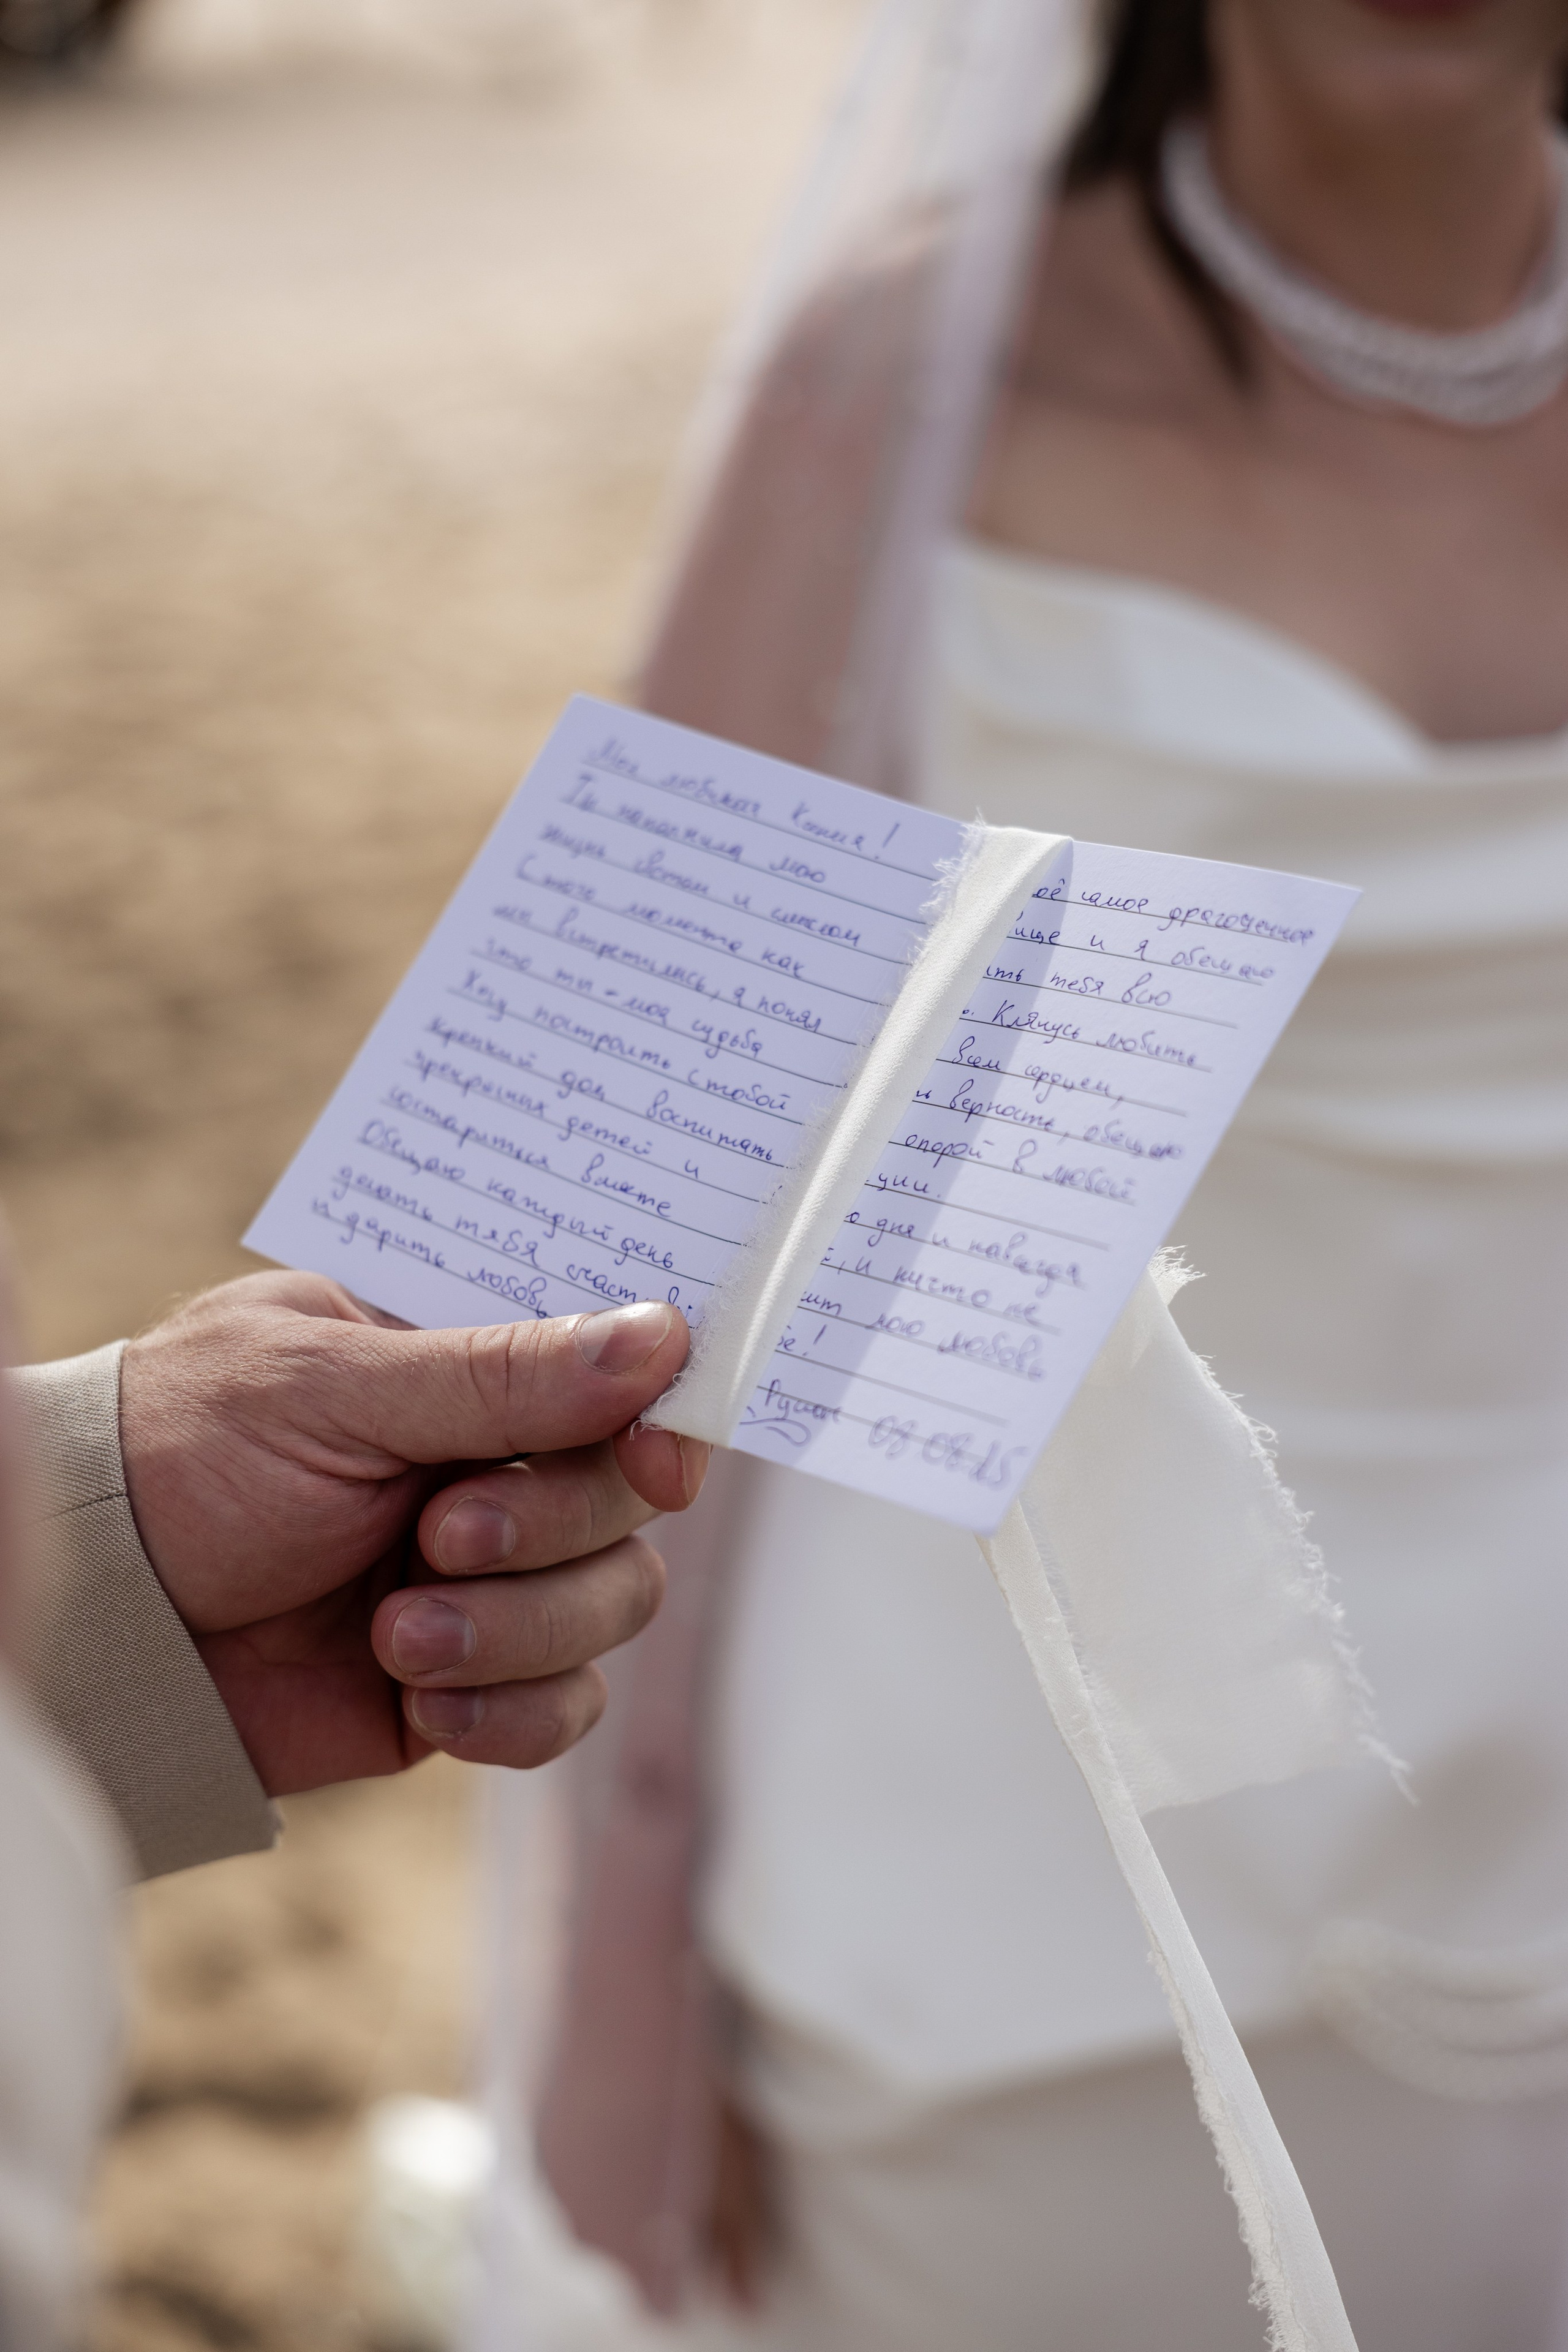 Моя любимая Ксения!
Ты наполнила мою
жизнь светом и смыслом
С того момента как
мы встретились, я понял
что ты - моя судьба
Хочу построить с тобой
крепкий дом, воспитать
прекрасных детей и
состариться вместе
Обещаю каждый день
делать тебя счаст
и дарить любовь
оё самое драгоценное
ище и я обещаю
ить тебя всю
. Клянусь любить
всем сердцем,
ь верность, обещаю
опорой в любой
ции.
о дня и навсегда
, и ничто не
ит мою любовь
бе!
08.08.25